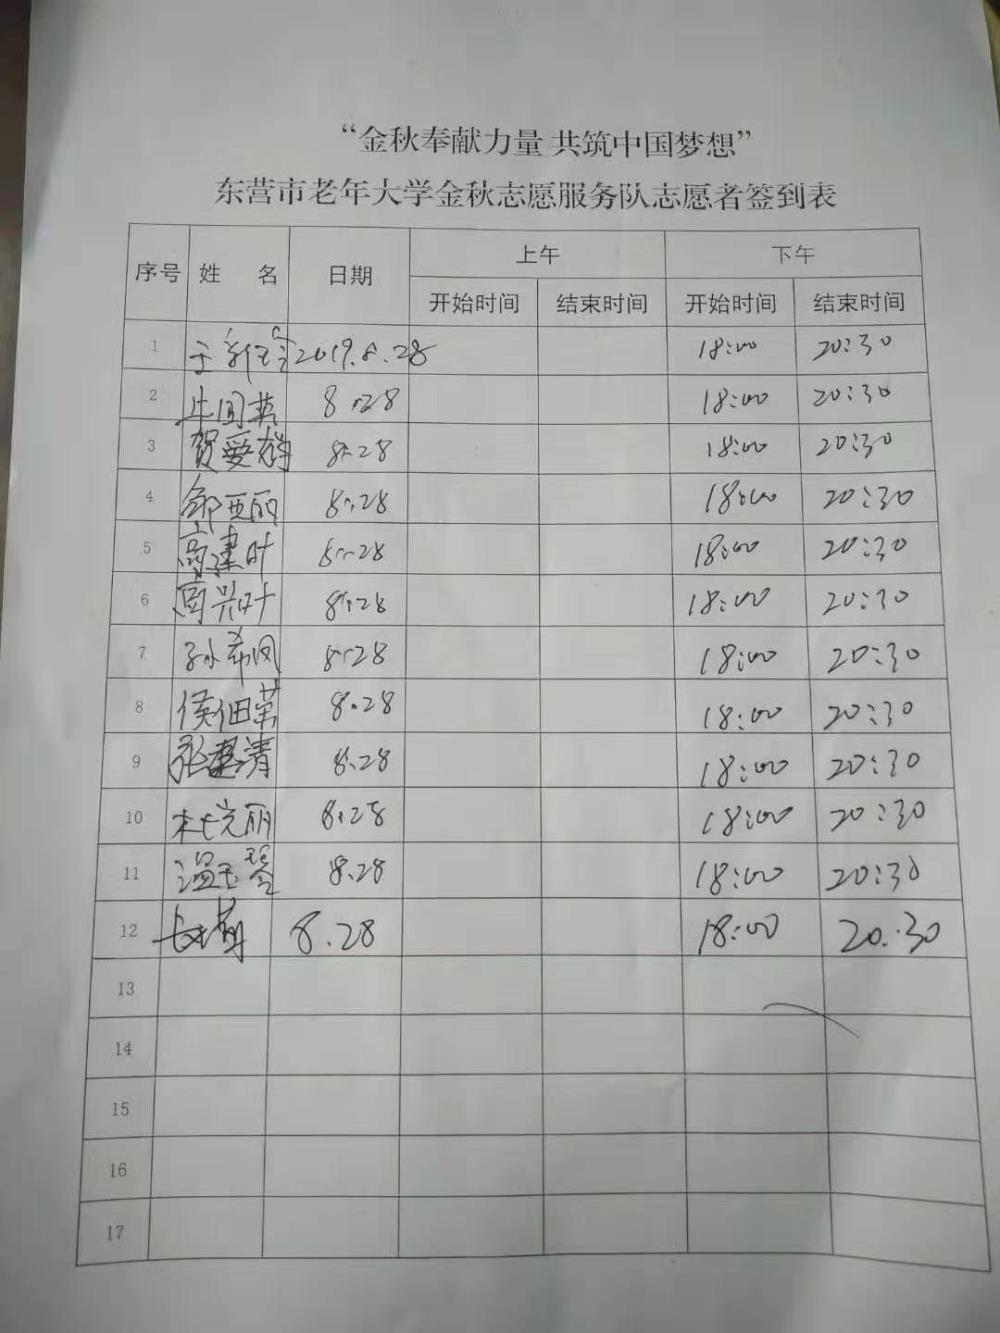 “金秋奉献力量 共筑中国梦想”
东营市老年大学金秋志愿服务队志愿者签到表
序号 姓 名 日期 上午 下午
开始时间 结束时间 开始时间 结束时间
1 2019.8.28 18:00 20:30
2 8.28 18:00 20:30
3 贺爱群 8.28 18:00 20:30
4 邹亚丽 8.28 18:00 20:30
5 高建叶 8.28 18:00 20:30
6 周兴叶 8.28 18:00 20:30
7 孙希凤 8.28 18:00 20:30
8 侯佃英 8.28 18:00 20:30
9 张惠清 8.28 18:00 20:30
10 杜党丽 8.28 18:00 20:30
11 温玉琴 8.28 18:00 20:30
12 8.28 18:00 20:30
13
14
15
16
17